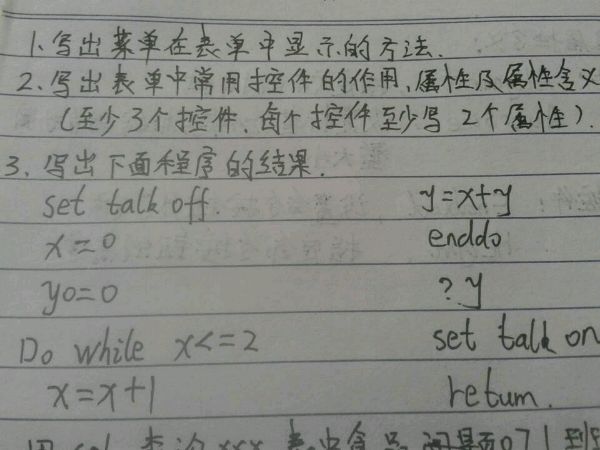 1.写出菜单在表单中显示的方法.
2.写出表单中常用控件的作用,属性及属性含义
(至少3个控件,每个控件至少写2个属性).
3.写出下面程序的结果.
set talk off.
x=0
y0=0
Do while x<=2
x=x+1
y=x+y
enddo
?y
set talk on
return.
查询xxx表中